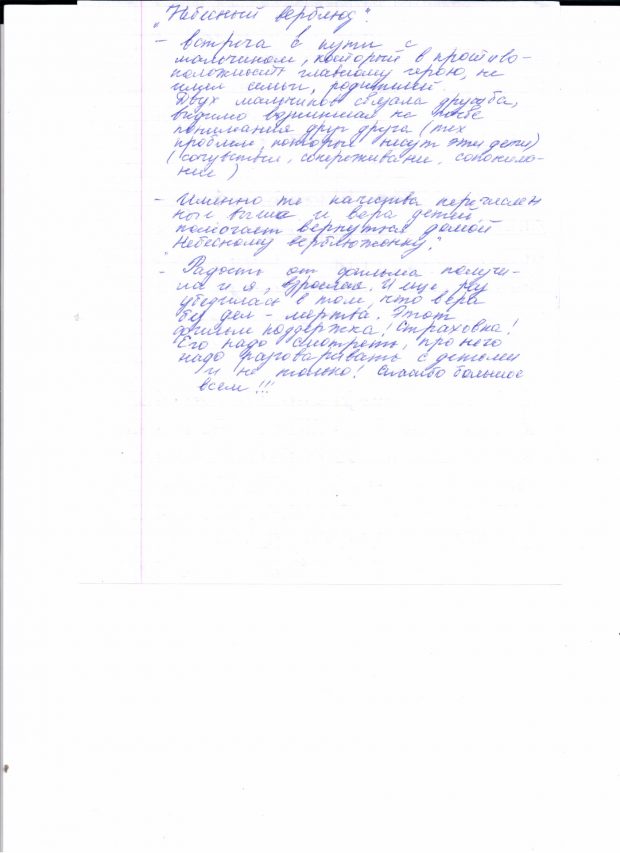 „Небесный верблюд".
- встреча в пути с
мальчиком, который в противо-
положность главному герою, не
имел семьи, родителей.
Двух мальчиков связала дружба,
видимо возникшая на почве
понимания друг друга (тех
проблем, которые несут эти дети)
(сочувствия, сопереживание,
- Именно те качества перечислен
ные выше и вера детей
помогает вернуться домой
„Небесному верблюжонку".
- Радость от фильма получи-
ла и я, взрослая. И еще раз
убедилась в том, что вера
без дел - мертва. Этот
фильм поддержка! Страховка!
Его надо смотреть, про него
надо разговаривать с детьми
и не только! Спасибо большое
всем!!!